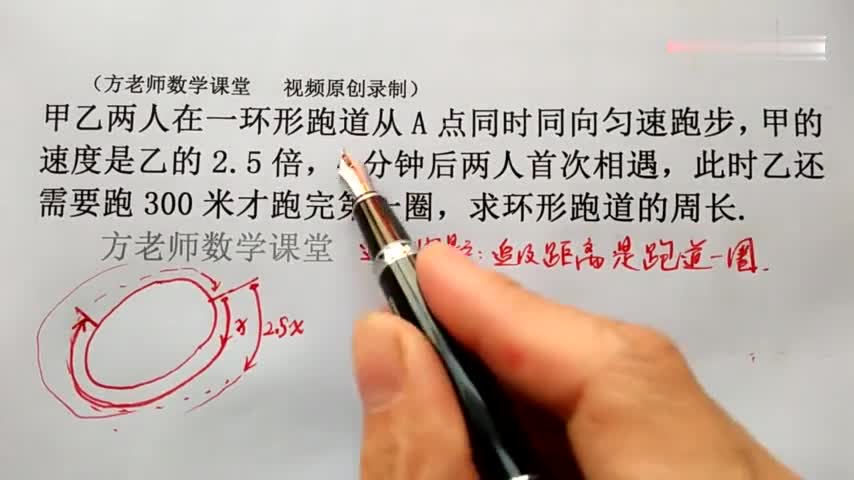 （方老师数学课堂 视频原创录制）
甲乙两人在一环形跑道从 A 点同时同向匀速跑步，甲的
速度是乙的 2.5 倍， 分钟后两人首次相遇，此时乙还
需要跑 300 米才跑完第一圈，求环形跑道的周长.
方老师数学课堂
追及距离是跑道一圈.
x
2.5x